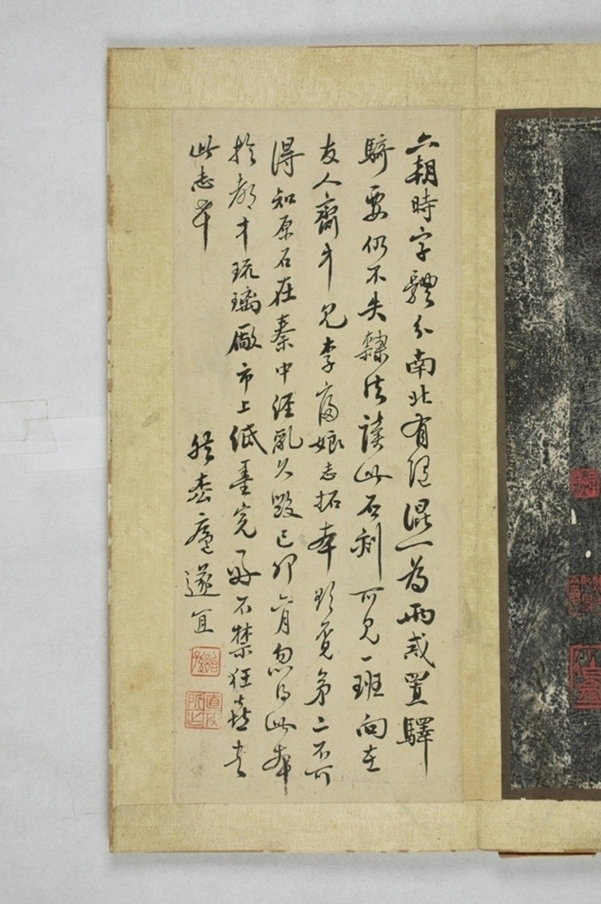 六朝時字體分南北有隋混一為而或置驛
騎要仍不失隸法讀此石刻可見一班向在
友人齋中見李富娘志拓本欲覓第二不可
得知原石在秦中經亂久毀己卯六月忽得此本
於都中琉璃廠市上紙墨完好不禁狂喜書
此志幸
松廬遂宜